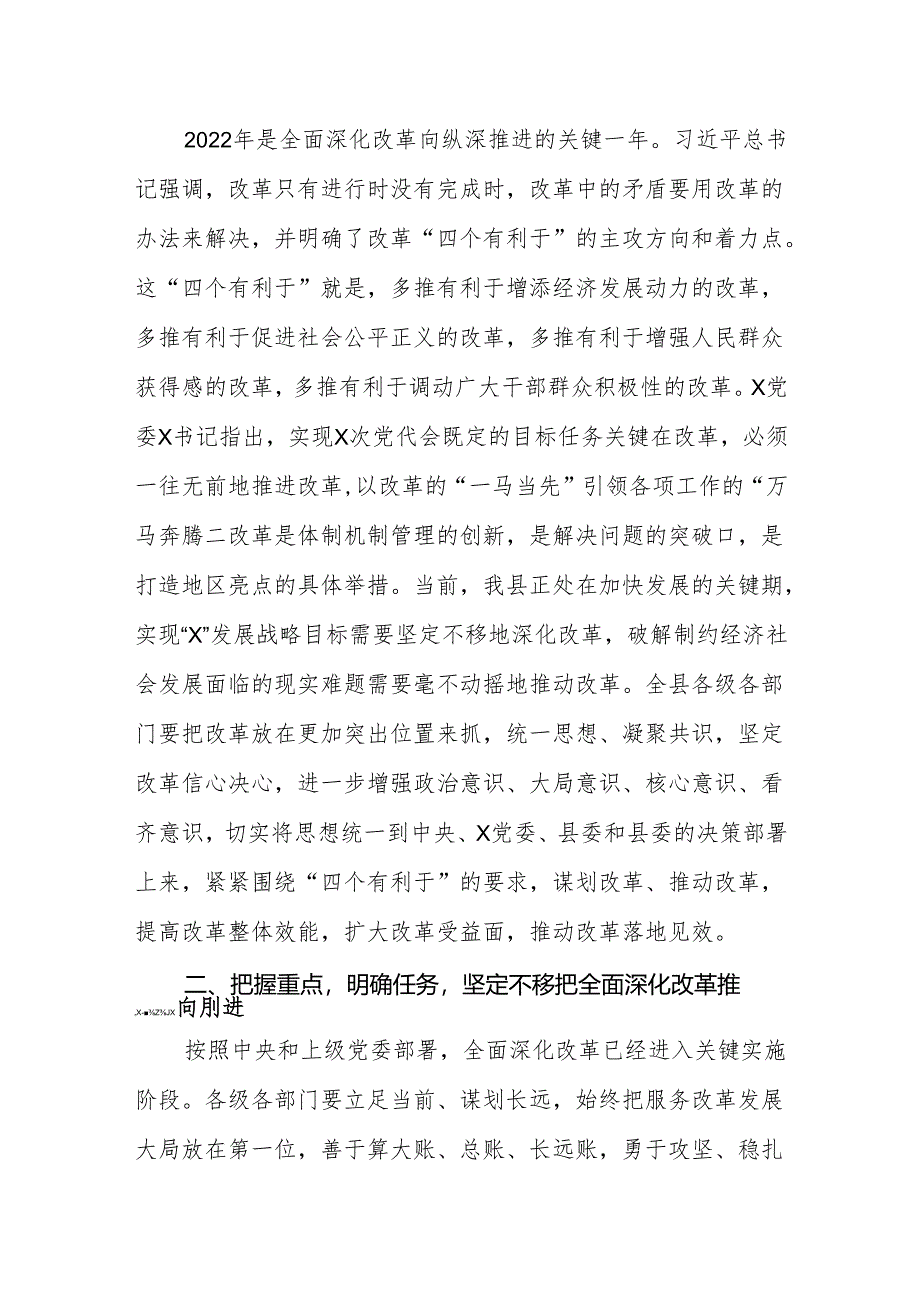 2022年是全面深化改革向纵深推进的关键一年。习近平总书
记强调，改革只有进行时没有完成时，改革中的矛盾要用改革的
办法来解决，并明确了改革“四个有利于”的主攻方向和着力点。
这“四个有利于”就是，多推有利于增添经济发展动力的改革，
多推有利于促进社会公平正义的改革，多推有利于增强人民群众
获得感的改革，多推有利于调动广大干部群众积极性的改革。X党
委X书记指出，实现X次党代会既定的目标任务关键在改革，必须
一往无前地推进改革,以改革的“一马当先”引领各项工作的“万
马奔腾二改革是体制机制管理的创新，是解决问题的突破口，是
打造地区亮点的具体举措。当前，我县正处在加快发展的关键期，
实现“X”发展战略目标需要坚定不移地深化改革，破解制约经济社
会发展面临的现实难题需要毫不动摇地推动改革。全县各级各部
门要把改革放在更加突出位置来抓，统一思想、凝聚共识，坚定
改革信心决心，进一步增强政治意识、大局意识、核心意识、看
齐意识，切实将思想统一到中央、X党委、县委和县委的决策部署
上来，紧紧围绕“四个有利于”的要求，谋划改革、推动改革，
提高改革整体效能，扩大改革受益面，推动改革落地见效。
二、把握重点，明确任务，坚定不移把全面深化改革推
向刖进
按照中央和上级党委部署，全面深化改革已经进入关键实施
阶段。各级各部门要立足当前、谋划长远，始终把服务改革发展
大局放在第一位，善于算大账、总账、长远账，勇于攻坚、稳扎